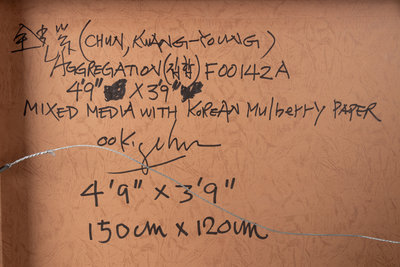 全光榮 (CHUN, KWANG-YOUNG)
AGGREGATION(집합) F00142A
4'9" X 3'9"
MIXED MEDIA WITH KOREAN MULBERRY PAPER
4'9" X 3'9"
150cm X 120cm